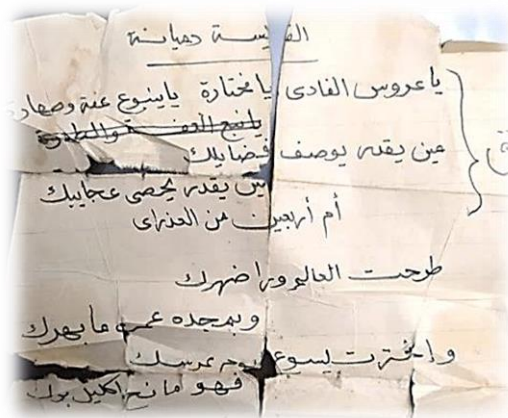 القديسة دميانة
يا عروس الفادى يا مختارة يا ينبوع عفة وطهارة
يا نبع العفة والطهارة
مين يقدر يوصف فضايلك
مين يقدر يحصى عجايبك
أم أربعين من العذراى
طرحت العالم ورا ضهرك
وبمجده عمره ما بهرك
واخترت يسوع عرسك
فهو مانح اكليل